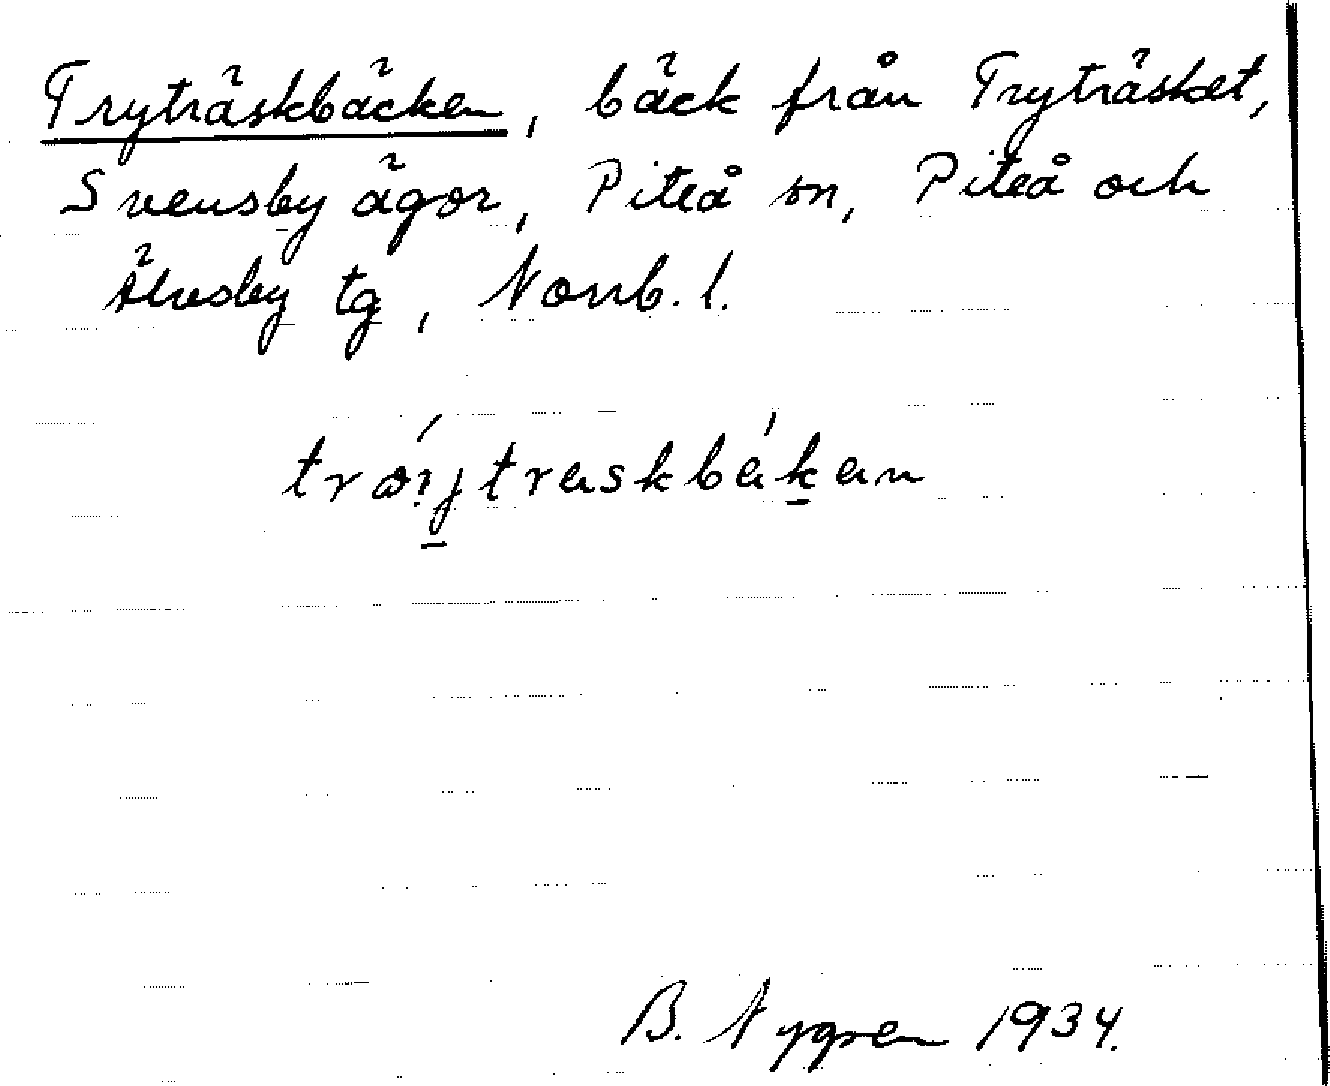 Tryträskbäcken, bäck från Tryträsket,
Svensby ägor, Piteå sn, Piteå och
Älvsby tg, Norrb. l.
B. Nygren 1934.